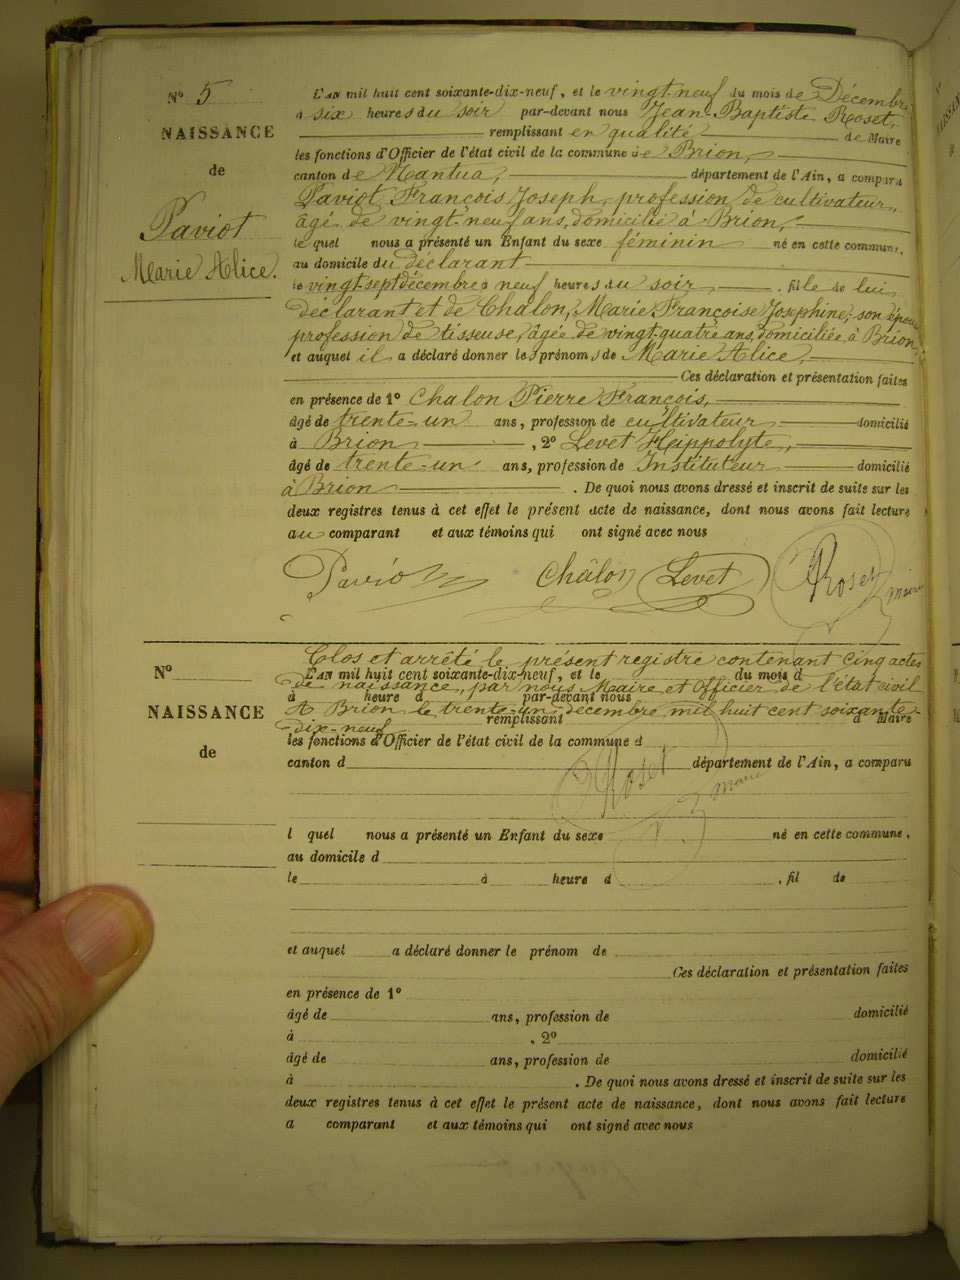 N° 5
NAISSANCE
de
Paviot
Marie Alice.
L'AN mil huit cent soixante-dix-neuf, et le vingt neuf du mois de Décembre
à six heures du soir par-devant nous Jean-Baptiste Roset,
remplissant en qualité de Maire
les fonctions d'Officier de l'état civil de la commune de Brion,
canton de Nantua, département de l'Ain, a comparu
Paviot, François Joseph, profession de cultivateur,
âgé de vingt-neuf ans, domicilié à Brion,
le quel nous a présenté un Enfant du sexe féminin né en cette commune,
au domicile du déclarant
le vingt-sept décembre à neuf heures du soir, fille de lui
déclarant et de Chalon, Marie Françoise Josephine, son épouse
profession de tisseuse, âgée de vingt-quatre ans, domiciliée à Brion,
et auquel il a déclaré donner les prénoms de Marie Alice,
Ces déclaration et présentation faites
en présence de 1° Chalon Pierre François,
âgé de trente-un ans, profession de cultivateur domicilié
à Brion, 2° Levet Hippolyte,
âgé de trente-un ans, profession de Instituteur domicilié
à Brion. De quoi nous avons dressé et inscrit de suite sur les
deux registres tenus à cet effet le présent acte de naissance, dont nous avons fait lecture
au comparant et aux témoins qui ont signé avec nous
Paviot Châlon Levet Roset maire
Clos et arrêté le présent registre contenant cinq actes
N° L'AN mil huit cent soixante-dix-neuf, et le du mois d
de naissance, par nous Maire et Officier de l'état civil
à heure d par-devant nous
NAISSANCE
A Brion le trente-un décembre mil huit cent soixante
remplissant d Maire
dix-neuf
les fonctions d'Officier de l'état civil de la commune d
de
canton d département de l'Ain, a comparu
Roset maire
l quel nous a présenté un Enfant du sexe né en cette commune,
au domicile d
le à heure d , fil de
et auquel a déclaré donner le prénom de
Ces déclaration et présentation faites
en présence de 1°
âgé de ans, profession de domicilié
à , 2°
âgé de ans, profession de domicilié
à . De quoi nous avons dressé et inscrit de suite sur les
deux registres tenus à cet effet le présent acte de naissance, dont nous avons fait lecture
a comparant et aux témoins qui ont signé avec nous